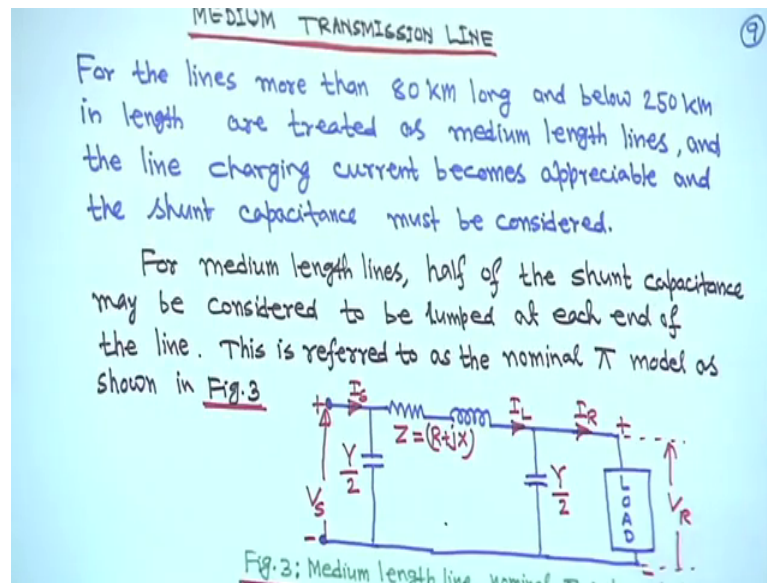 MEDIUM TRANSMISSION LINE
9
For the lines more than 80 km long and below 250 km
in length are treated as medium length lines, and
the line charging current becomes appreciable and
the shunt capacitance must be considered.
For medium length lines, half of the shunt capacitance
may be considered to be lumped at each end of
the line. This is referred to as the nominal π model as
shown in Fig.3
+ IS IL IR +
Z=(R+jX)
Y/2 Y/2 LOAD
VS VR
- -
Fig.3: Medium length line nominal